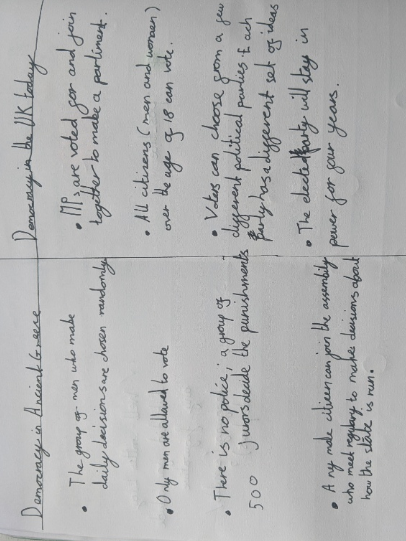 Democracy in Ancient Greece
• The group of men who make
daily decisions are chosen randomly
• Only men are allowed to vote
• There is no police, a group of
500 jurors decide the punishments
• Any male citizen can join the assembly
who meet regulary to make decisions about
how the state is run.
Democracy in the UK today
• MPs are voted for and join
together to make a parliment.
• All citizens (men and women)
over the age of 18 can vote.
• Voters can choose from a few
different political parties. Each
party has a different set of ideas
• The elected party will stay in
power for four years.